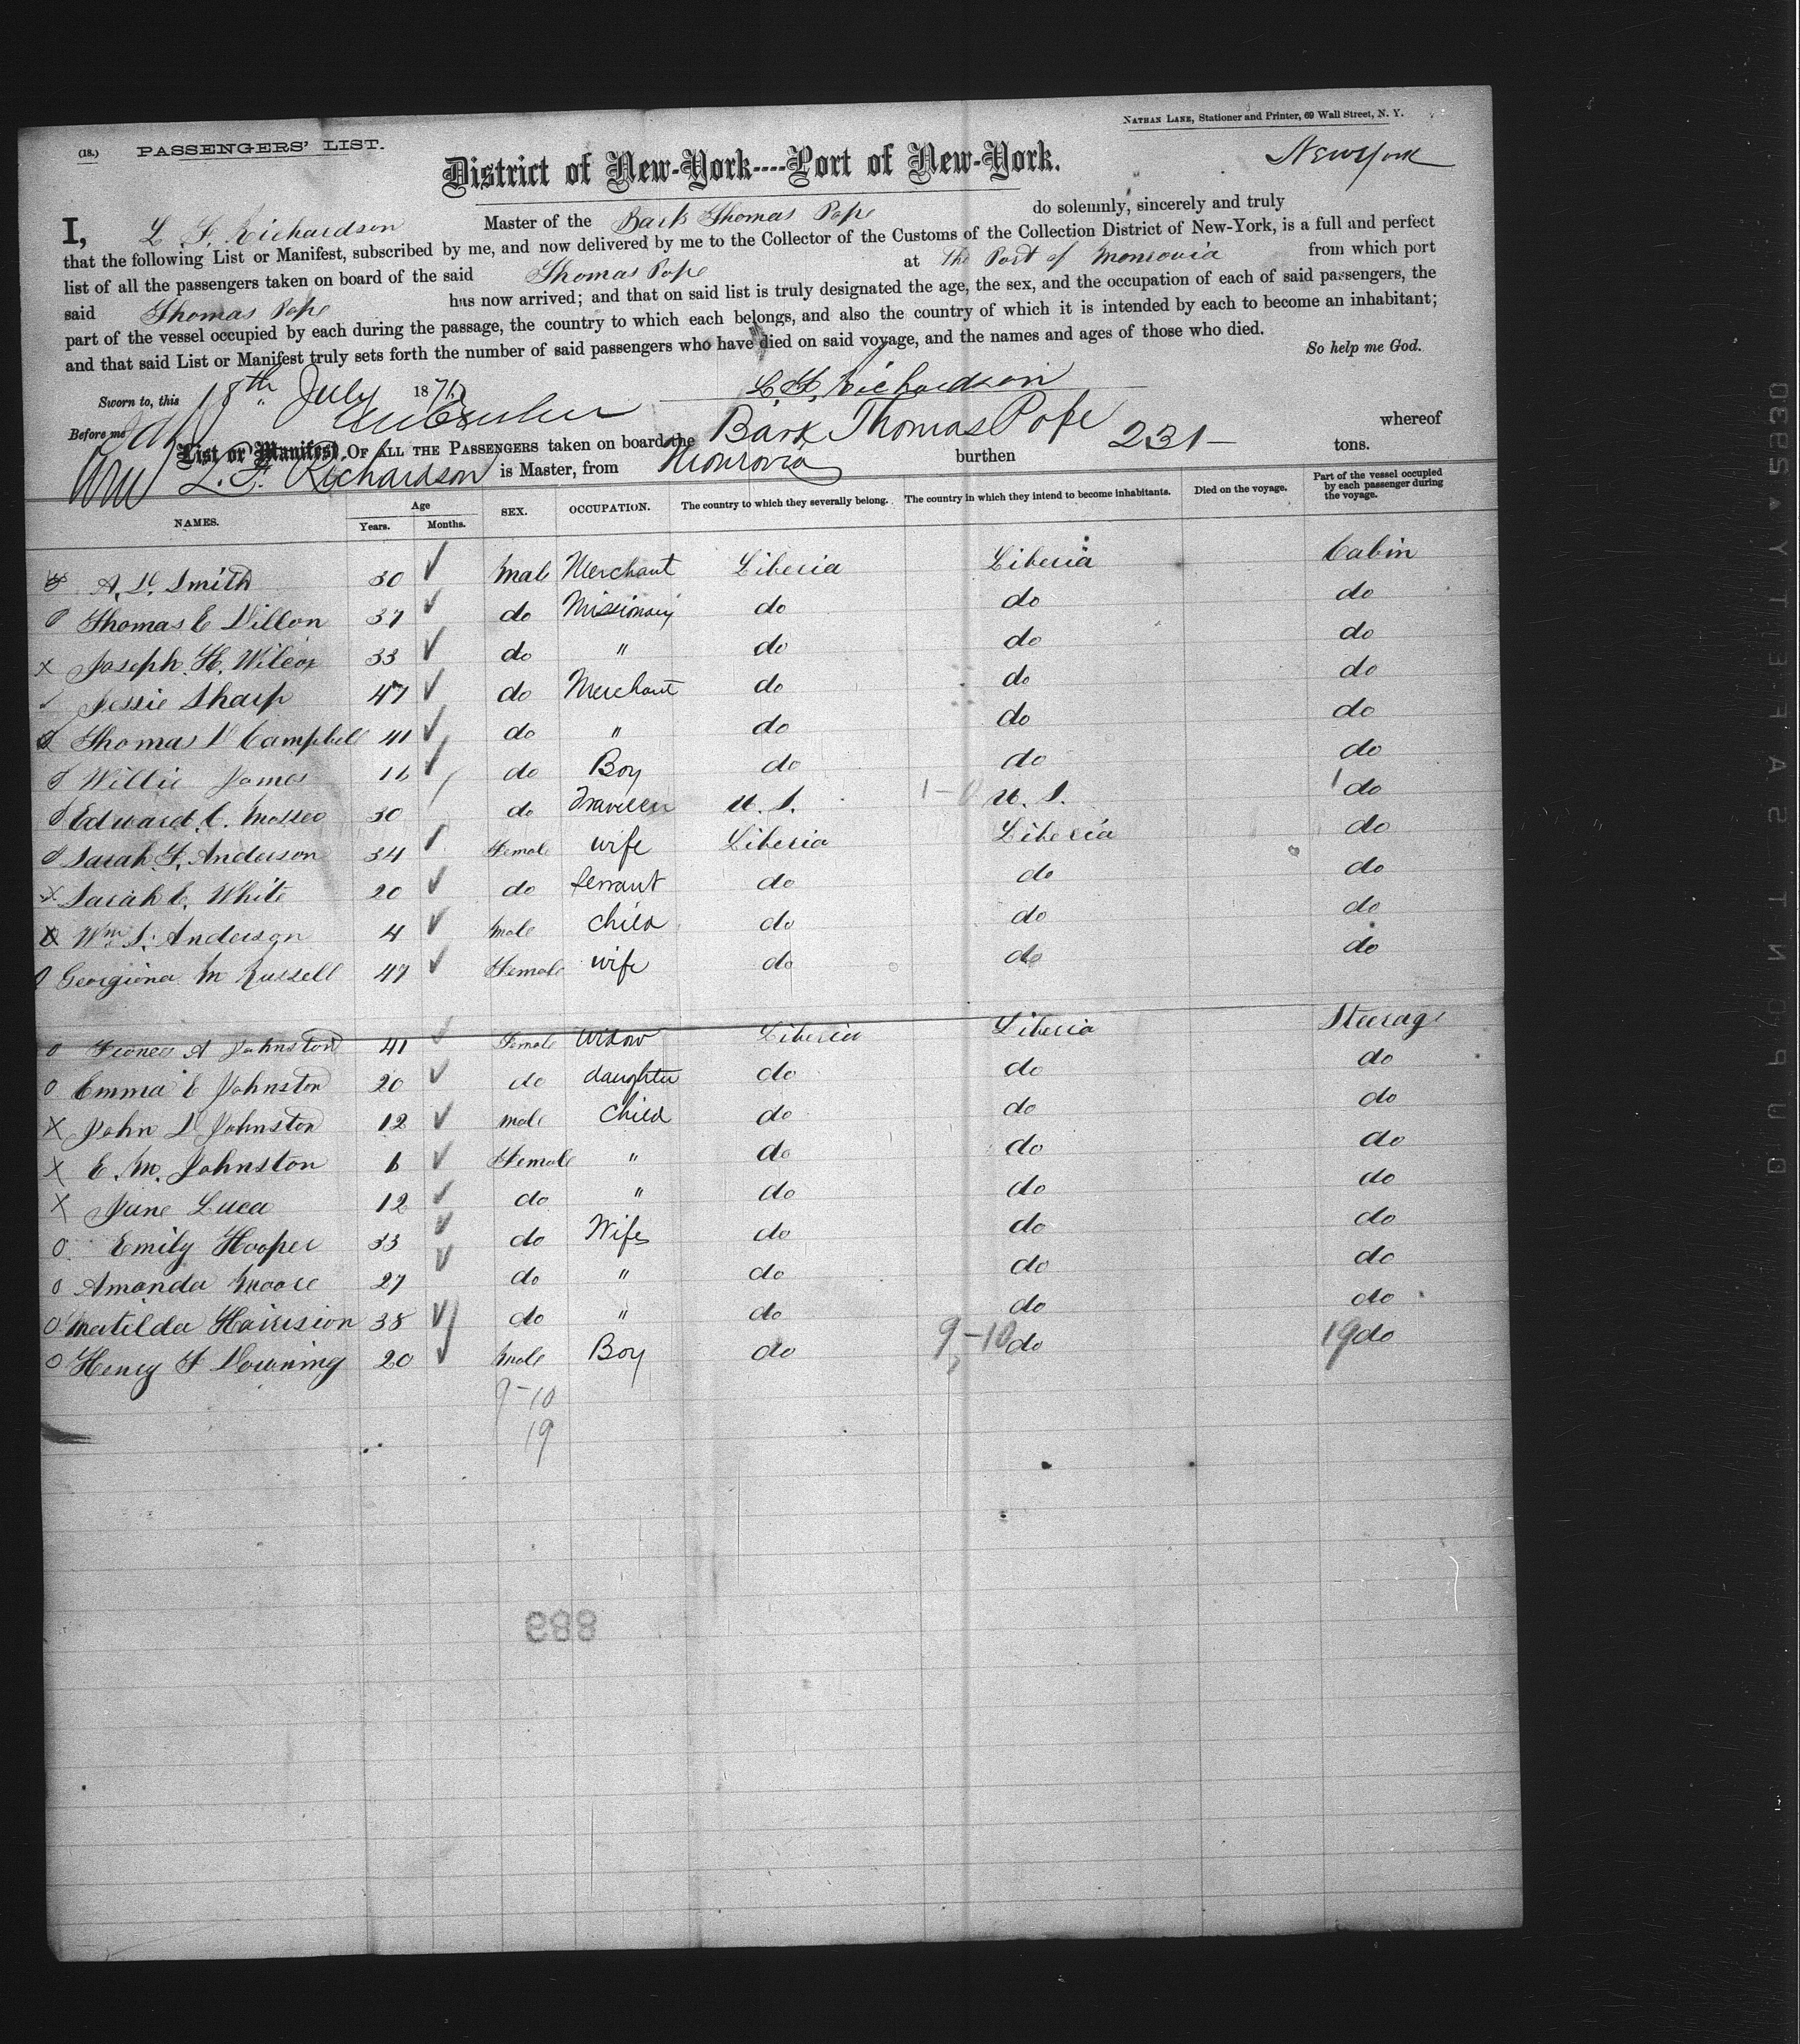 NATHAN LANE, Stationer and Printer, 69 Wall Street, N. Y.
(18.) PASSENGERS' LIST.
District of New-York----Port of New-York. New York
I, L. F. Richardson Master of the Bark Thomas Pope do solemnly, sincerely and truly
that the following List or Manifest, subscribed by me, and now delivered by me to the Collector of the Customs of the Collection District of New-York, is a full and perfect
list of all the passengers taken on board of the said Thomas Pope at the Port of Monrovia from which port
said Thomas Pope has now arrived; and that on said list is truly designated the age, the sex, and the occupation of each of said passengers, the
part of the vessel occupied by each during the passage, the country to which each belongs, and also the country of which it is intended by each to become an inhabitant;
and that said List or Manifest truly sets forth the number of said passengers who have died on said voyage, and the names and ages of those who died.
So help me God.
Sworn to, this 18th July 187 L. F. Richardson
Before me
List or Manifest OF ALL THE PASSENGERS taken on board the Bark Thomas Pope whereof
L. F. Richardson is Master, from Monrovia burthen 231 - tons.
NAMES. Age Years. Months. SEX. OCCUPATION. The country to which they severally belong. The country in which they intend to become inhabitants. Died on the voyage. Part of the vessel occupied by each passenger during the voyage.
Smith 30 ✓ Male Merchant Liberia Liberia Cabin
Thomas E Dillon 37 ✓ do Missionary do do do
x Joseph H. Wilcox 33 ✓ do " do do do
Jessie Sharp 47 ✓ do Merchant do do do
Thomas D Campbell 41 ✓ do " do do do
Willie James ✓ do Boy do do do
Edward C. 30 do Traveller U. S. 1-0 U. S. 1 do
Sarah F. Anderson 34 ✓ Female wife Liberia Liberia do
x Sarah E. White 20 ✓ do Servant do do do
Wm S. Anderson 4 ✓ male child do do do
Georgiona M Russell 47 ✓ Female wife do do do
o Frances A Johnston 41 ✓ Female Widow Liberia Liberia Steerage
o Emma E Johnston 20 ✓ do daughter do do do
x John D Johnston 12 ✓ male Child do do do
x E. M. Johnston 6 ✓ Female " do do do
x June Luca 12 ✓ do " do do do
o Emily Hooper 33 ✓ do Wife do do do
o Amanda Moore 27 ✓ do " do do do
o Matilda Harrision 38 ✓ do " do do do
o Henry F Downing 20 ✓ male Boy do 9-10 do 19 do
9-10
19
889
DUP/ON